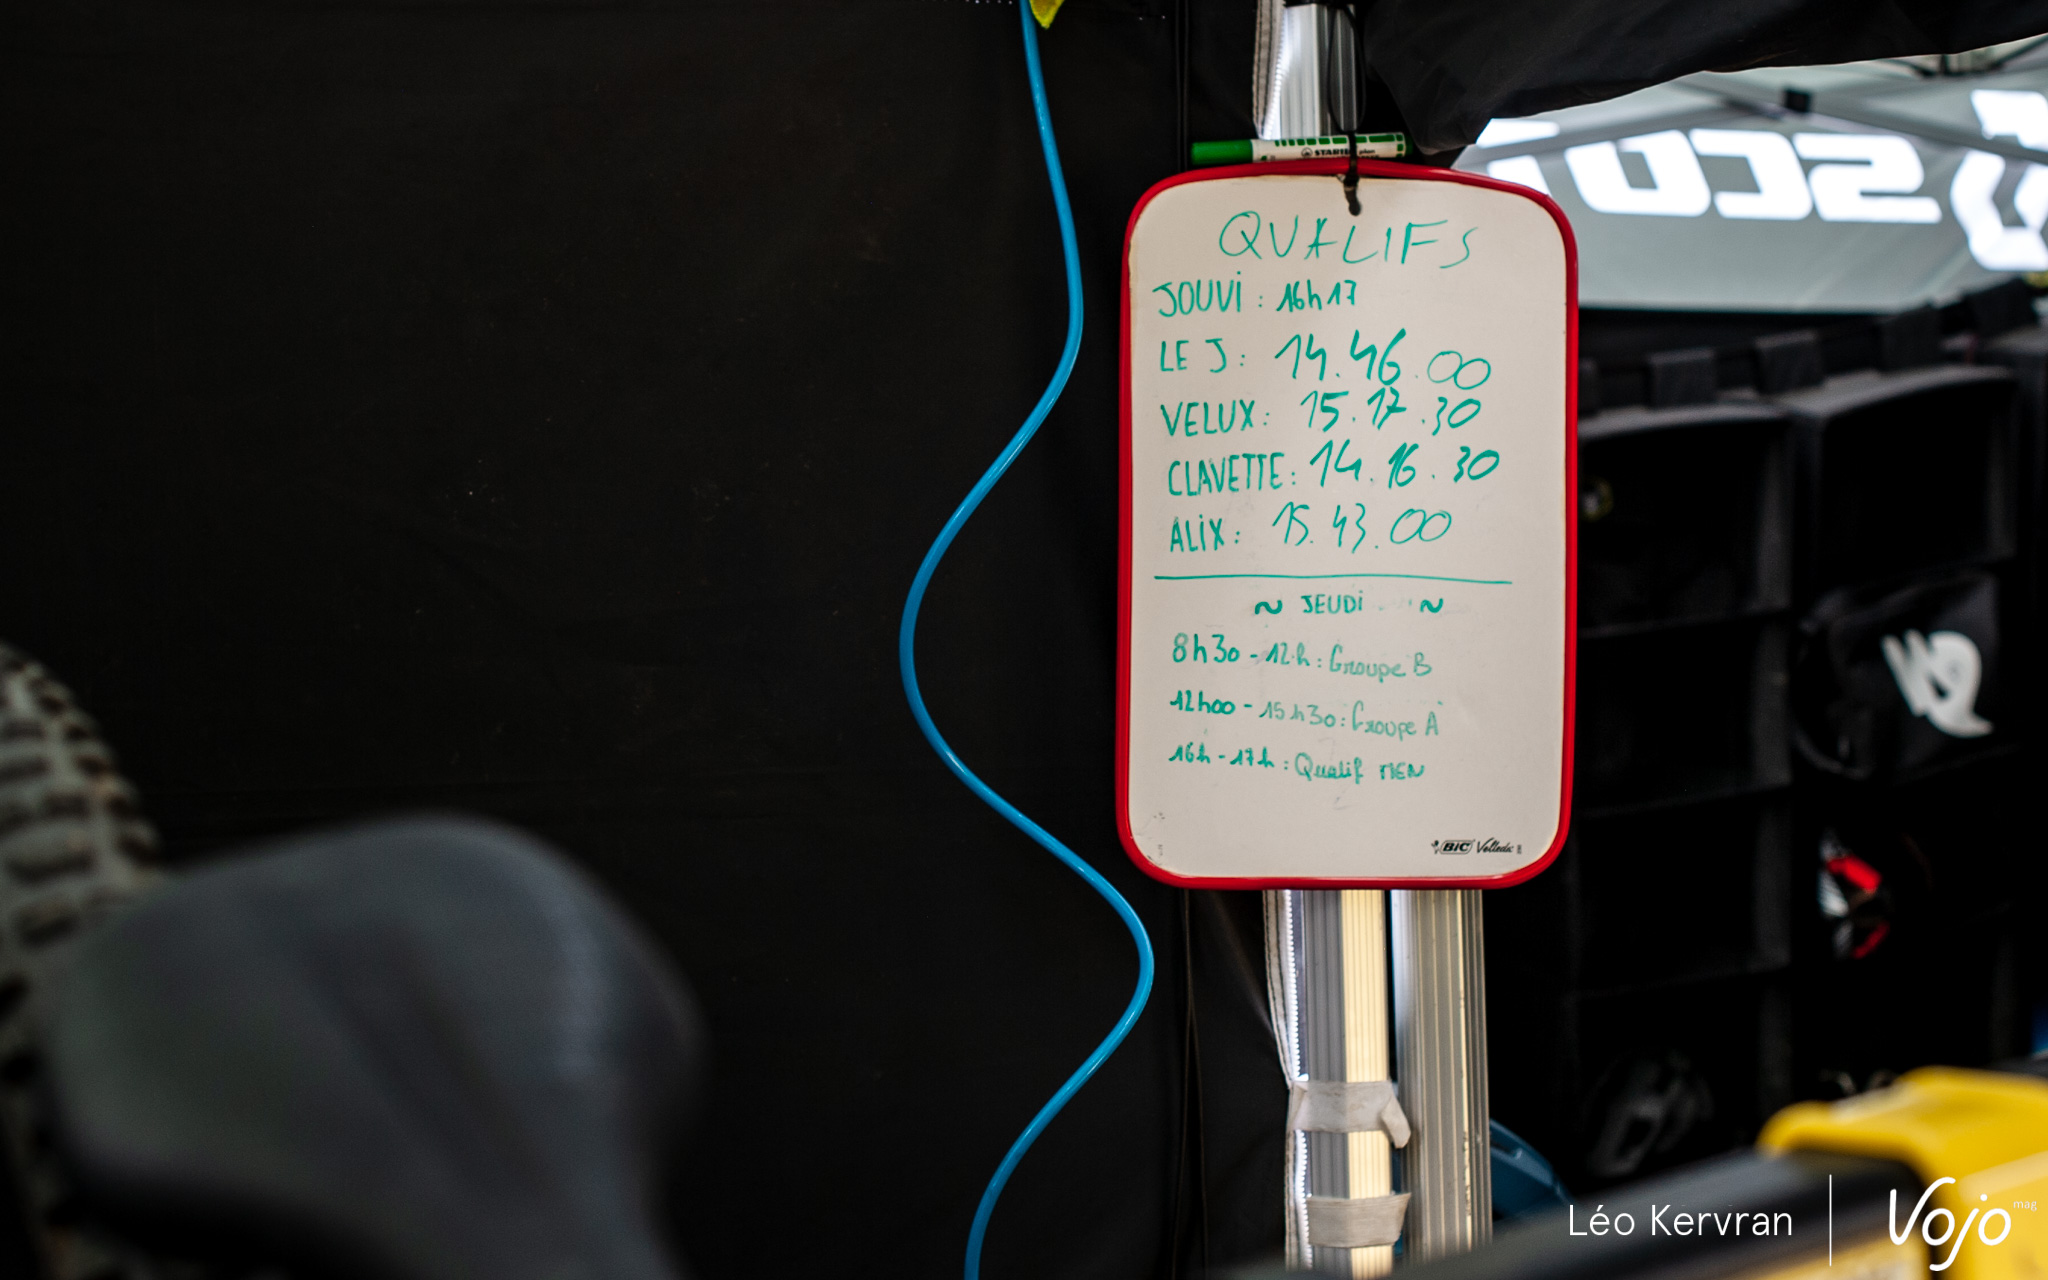 STABILO plan
SCOT
QUALIFS
JOUVI : 16h17
LE J : 14.46.00
VELUX : 15.17.30
CLAVETTE : 14.16.30
ALIX : 15.43.00
~ JEUDI ~
8h30 - 12h : Groupe B
12h00 - 15h30 : Groupe A
16h - 17h : Qualif MEN
BIC Velleda
Léo Kervran
Vojo mag